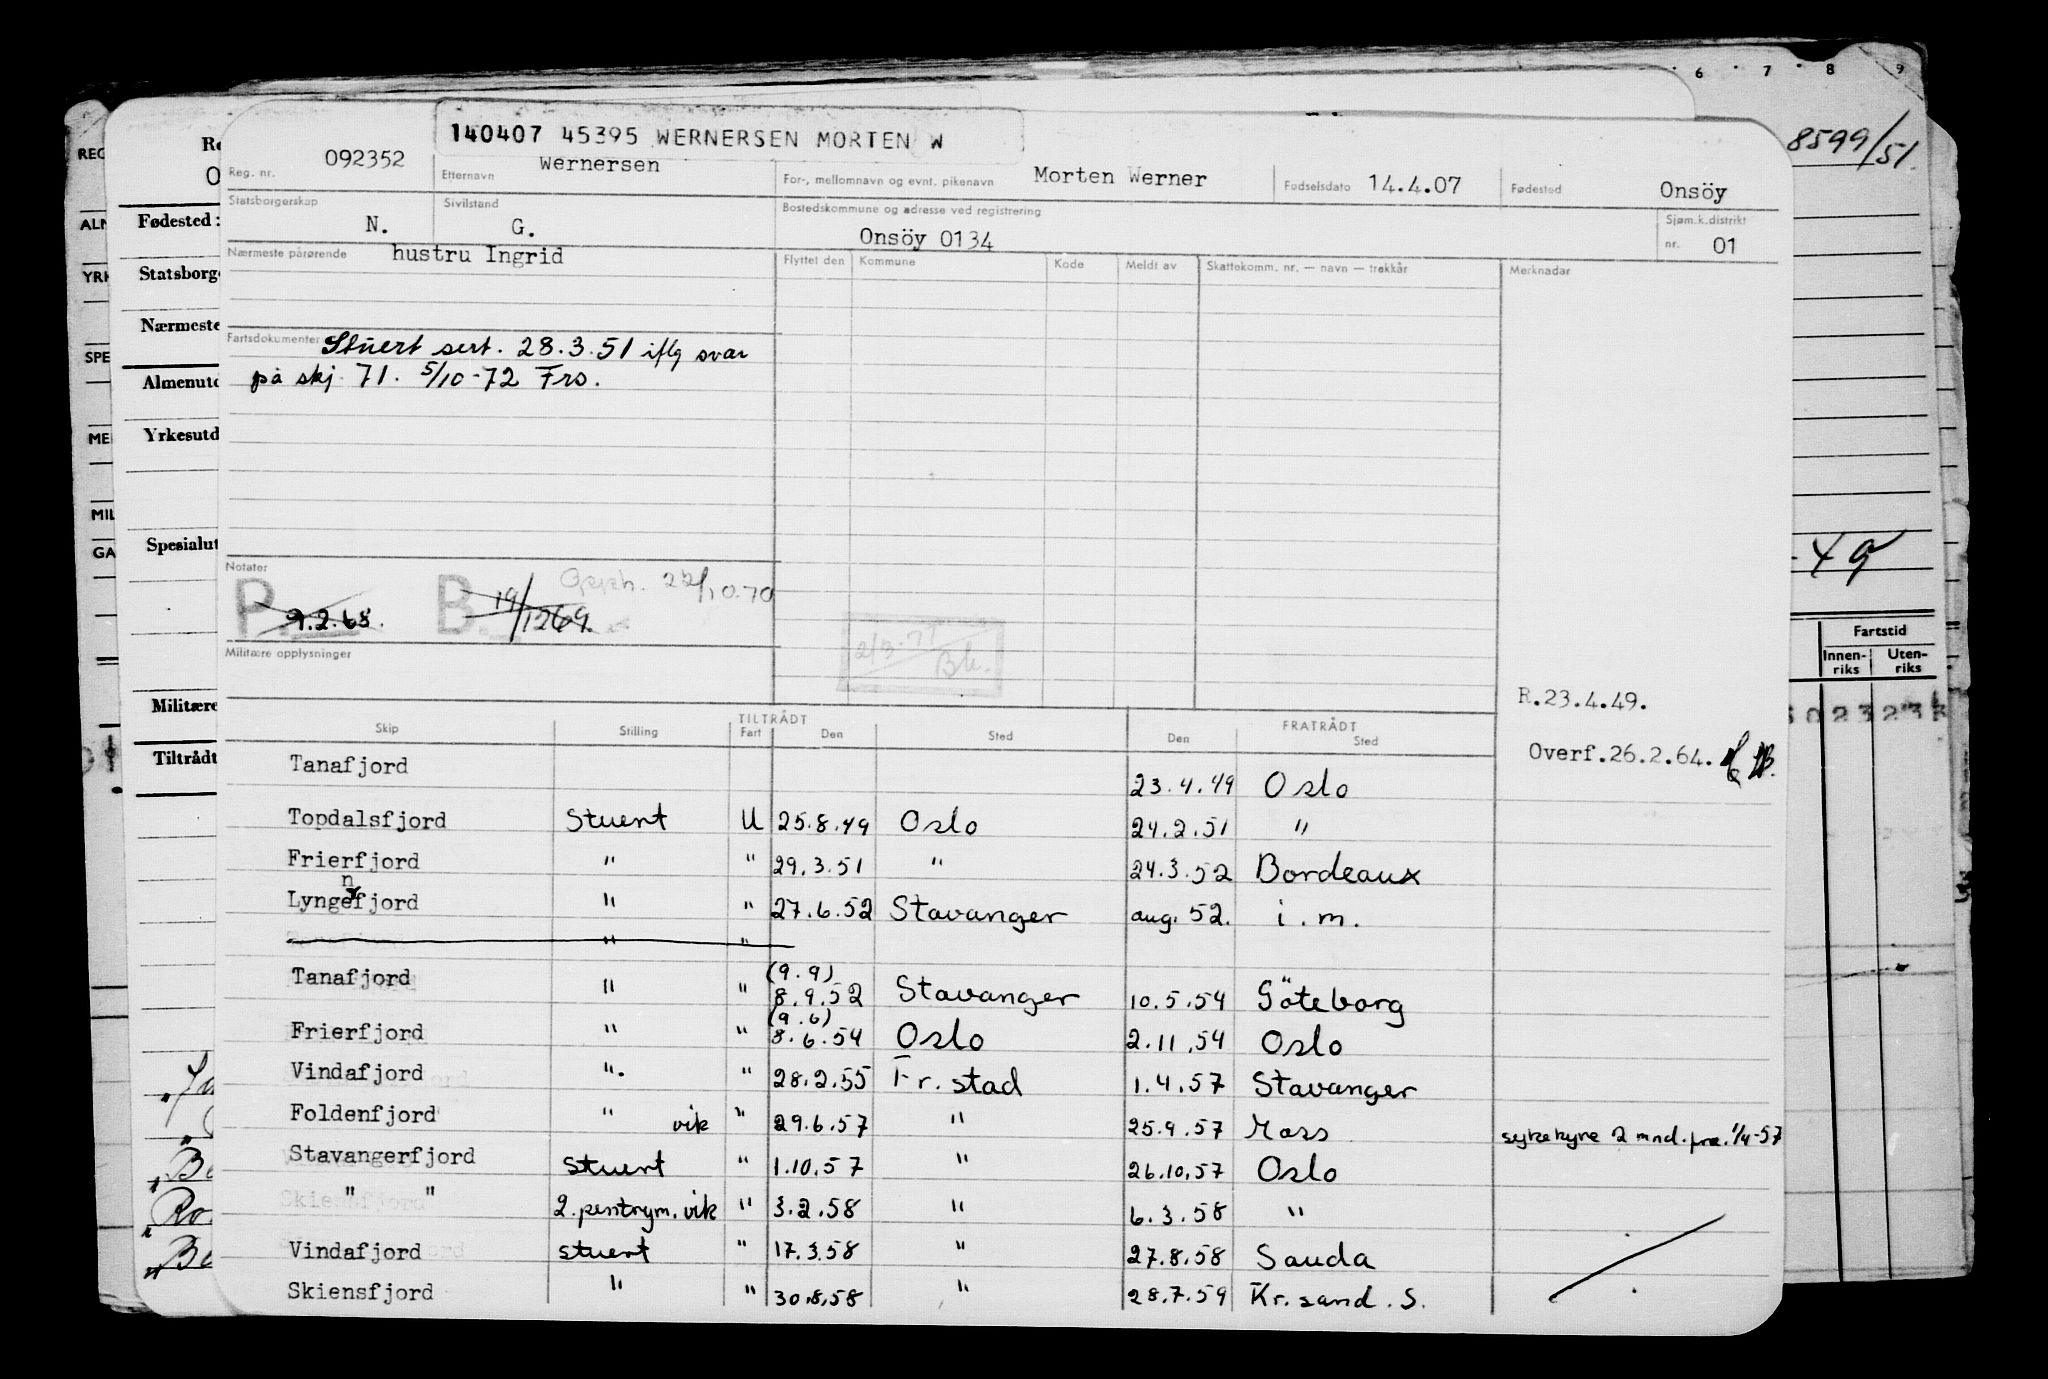 140407 45395 WERNERSEN MORTEN W
Reg. nr. 092352 Etternavn Wernersen For-, mellomnavn og evnt. pikenavn Morten Werner Fødselsdato 14.4.07 Fødested Onsöy
Statsborgerskap N. Sivilstand G. Bostedskommune og adresse ved registrering Onsöy 0134 Sjøm.k.distrikt nr. 01
Nærmeste pårørende hustru Ingrid Flyttet den Kommune Kode Meldt av Skattekomm. nr. — navn — trekkår Merknader
Fartsdokumenter Stuert sert. 28.3.51 iflg svar
på skj. 71. 5/10-72 Frs.
Notater
P. 9.2.65. B. 19/1269. 22/10.70
Militære opplysninger
R.23.4.49.
Overf.26.2.64.
TILTRÅDT FRATRÅDT
Skip Stilling Fart Den Sted Den Sted
Tanafjord 23.4.49 Oslo
Topdalsfjord Stuert U 25.8.49 Oslo 24.2.51 "
Frierfjord " " 29.3.51 " 24.3.52 Bordeaux
n
Lyngefjord " " 27.6.52 Stavanger aug. 52. i.m.
" "
Tanafjord " " (9.9) 8.9.52 Stavanger 10.5.54 Göteborg
Frierfjord " " (9.6) 8.6.54 Oslo 2.11.54 Oslo
Vindafjord " " 28.2.55 Fr.stad 1.4.57 Stavanger
Foldenfjord " vik " 29.6.57 " 25.9.57 Moss sykehyre 2 mnd. fra. 1/4-57
Stavangerfjord Stuert " 1.10.57 " 26.10.57 Oslo
" " 2.pentrym.vik " 3.2.58 " 6.3.58 "
Vindafjord stuert " 17.3.58 " 27.8.58 Sauda
Skiensfjord " " 30.8.58 " 28.7.59 Kr.sand.S.
Fødested:
Statsborge
Nærmeste
Almenutd
Yrkesutd
Spesialut
Militære
Tiltrådt
REG
ALN
YRK
SPE
MIL
GA
6 7 8 9
8599/51.
Fartstid
Innen-
riks
Uten-
riks